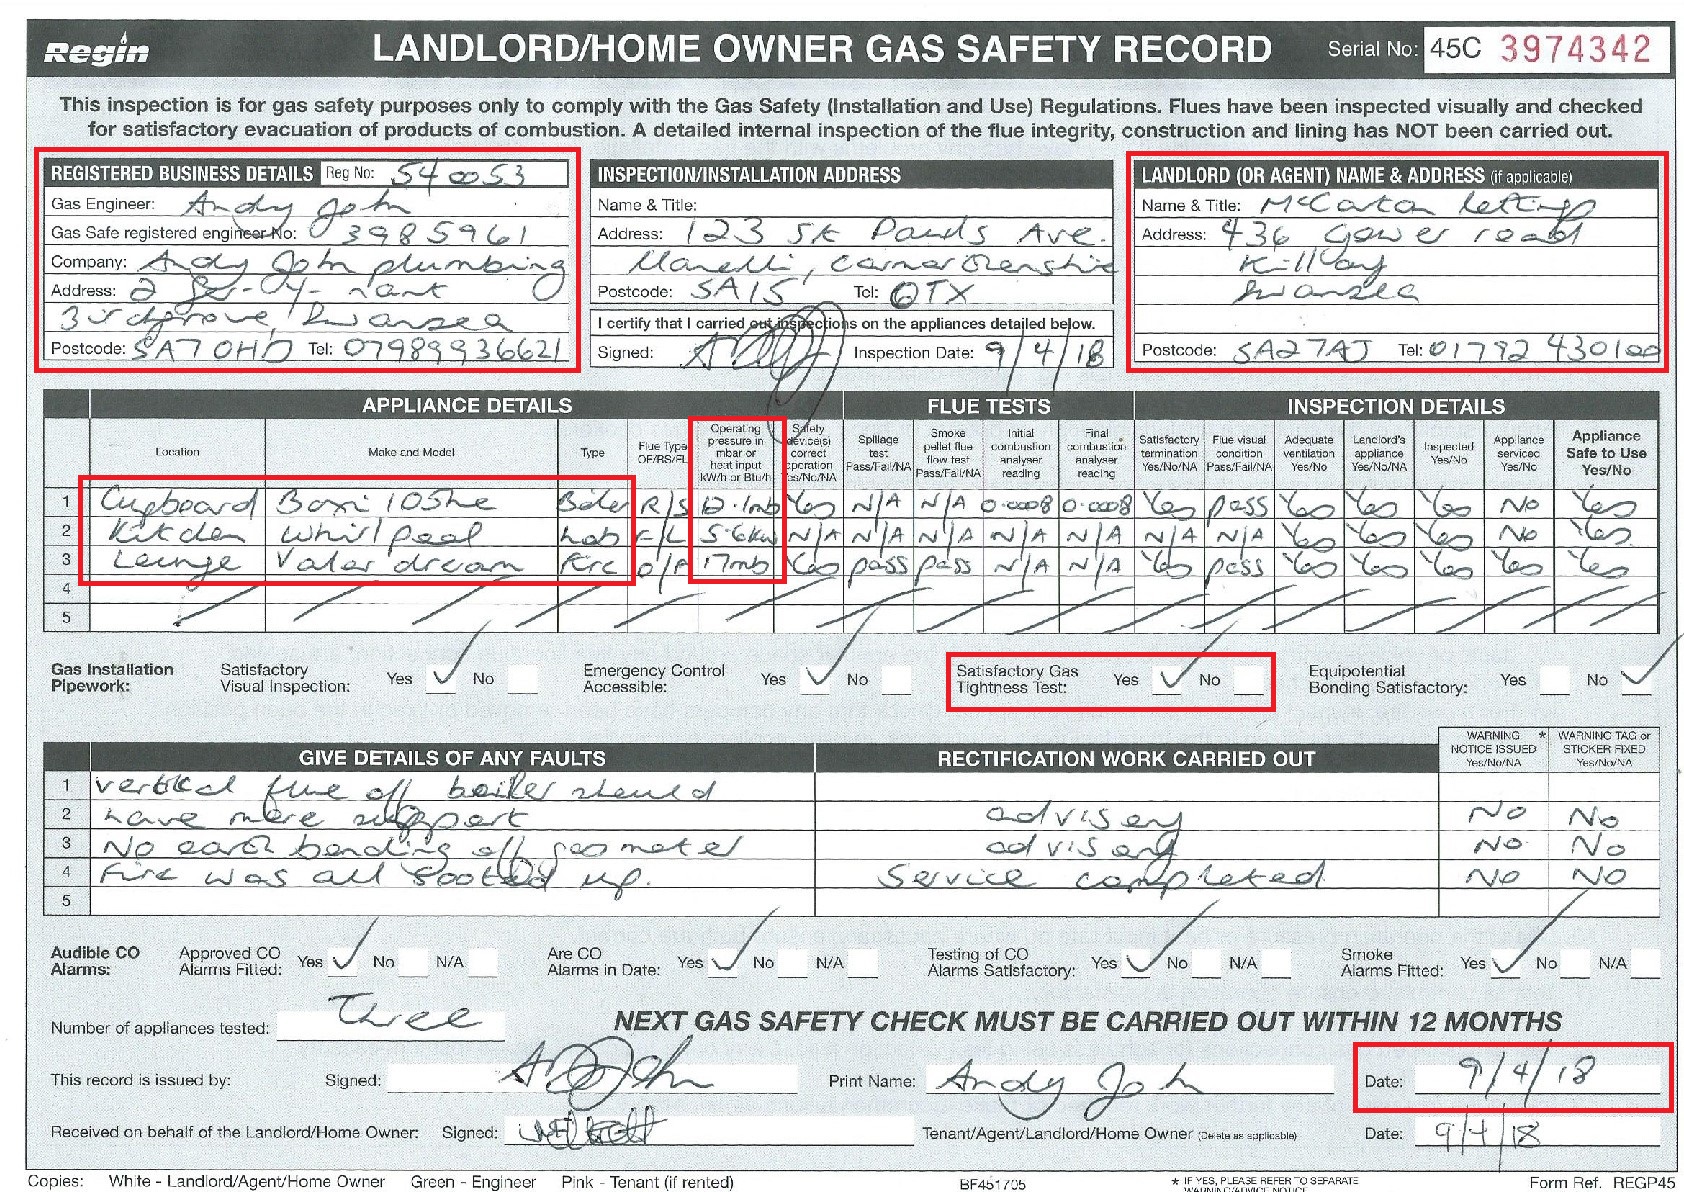 Regin
LANDLORD/HOME OWNER GAS SAFETY RECORD
Serial No: 45C 3974342
This inspection is for gas safety purposes only to comply with the Gas Safety (Installation and Use) Regulations. Flues have been inspected visually and checked
for satisfactory evacuation of products of combustion. A detailed internal inspection of the flue integrity, construction and lining has NOT been carried out.
REGISTERED BUSINESS DETAILS Reg No: 540053
Gas Engineer: Andy John
Gas Safe registered engineer No: 3985961
Company: Andy John plumbing
Address: 2
Swansea
Postcode: SA7 0HD Tel: 07989936621
INSPECTION/INSTALLATION ADDRESS
Name & Title:
Address: 123 Pauls Ave.
Llanelli,
Postcode: SA15 Tel: QTX
I certify that I carried out inspections on the appliances detailed below.
Signed: Inspection Date: 9/4/18
LANDLORD (OR AGENT) NAME & ADDRESS (if applicable)
Name & Title: lettings
Address: 436 Gower road
Killay
Swansea
Postcode: SA27AJ Tel: 01792 430100
APPLIANCE DETAILS FLUE TESTS INSPECTION DETAILS
Location
Make and Model
Type
Flue Type OF/RS/FL
Operating pressure in mbar or heat input kW/h or Btu/h
Safety device(s) correct operation Yes/No/NA
Spillage test Pass/Fail/NA
Smoke pellet flue flow test Pass/Fail/NA
Initial combustion analyser reading
Final combustion analyser reading
Satisfactory termination Yes/No/NA
Flue visual condition Pass/Fail/NA
Adequate ventilation Yes/No
Landlord's appliance Yes/No/NA
Inspected Yes/No
Appliance serviced Yes/No
Appliance Safe to Use Yes/No
1 Cupboard Baxi 105he Boiler R/S 12.1mb Yes N/A N/A 0.0008 0.0008 Yes pass Yes Yes Yes No Yes
2 Kitchen Whirlpool hob F/L 5.6kw N/A N/A N/A N/A N/A N/A N/A Yes Yes Yes No Yes
3 Lounge Valor dream Fire 17mb Yes pass pass N/A N/A Yes pass Yes Yes Yes Yes Yes
4
5
Gas Installation Pipework: Satisfactory Visual Inspection: Yes ✓ No Emergency Control Accessible: Yes ✓ No Satisfactory Gas Tightness Test: Yes ✓ No Equipotential Bonding Satisfactory: Yes No ✓
GIVE DETAILS OF ANY FAULTS RECTIFICATION WORK CARRIED OUT WARNING NOTICE ISSUED * Yes/No/NA WARNING TAG or STICKER FIXED Yes/No/NA
1 vertical flue off boiler should
2 have more support advisory No No
3 No earth bonding off gas meter advisory No No
4 Fire was all sooted up. Service completed No No
5
Audible CO Alarms: Approved CO Alarms Fitted: Yes ✓ No N/A Are CO Alarms in Date: Yes ✓ No N/A Testing of CO Alarms Satisfactory: Yes ✓ No N/A Smoke Alarms Fitted: Yes ✓ No N/A
Number of appliances tested: Three
NEXT GAS SAFETY CHECK MUST BE CARRIED OUT WITHIN 12 MONTHS
This record is issued by: Signed: A John Print Name: Andy John Date: 9/4/18
Received on behalf of the Landlord/Home Owner: Signed: Tenant/Agent/Landlord/Home Owner (Delete as applicable) Date: 9/4/18
Copies: White - Landlord/Agent/Home Owner Green - Engineer Pink - Tenant (if rented) BF451705 * IF YES, PLEASE REFER TO SEPARATE WARNING/ADVICE NOTICE Form Ref. REGP45